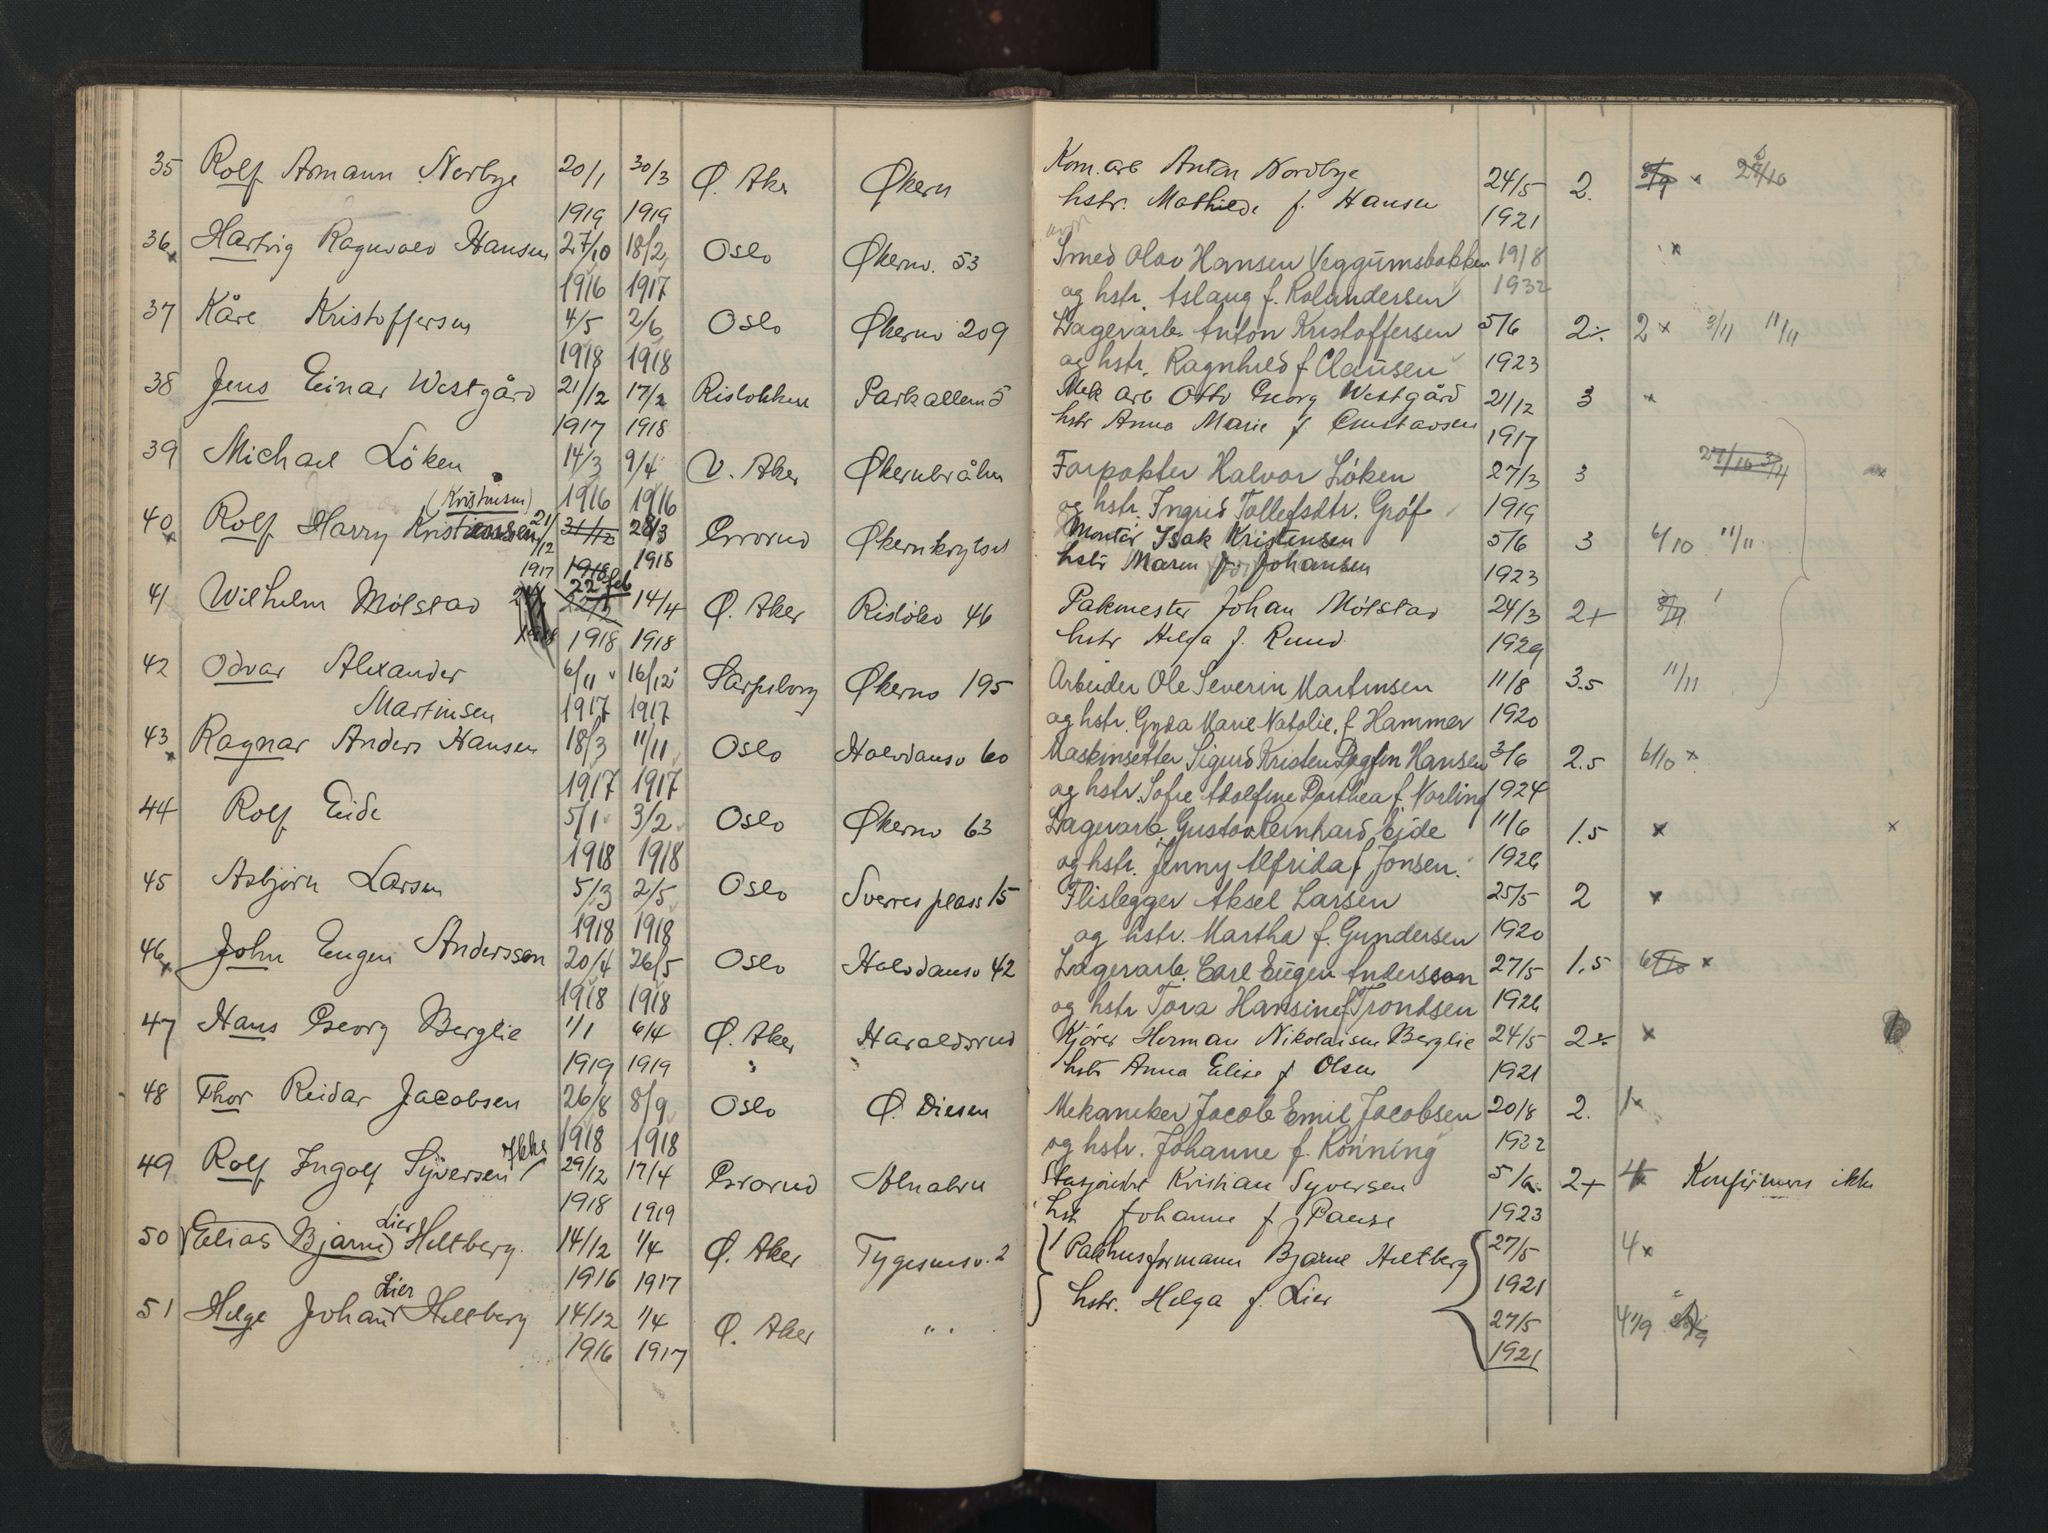 35 Rolf Armann Norbye 20/1 30/3 Ø. Aker Økern Kom. arb Anton Nordbye 24/5 2. x
1919 1919 hstr. Mathilde f. Hansen 1921
36 Hartvig Ragnvald Hansen 27/10 18/2 Oslo Økernv. 53 Smed Olav Hansen Veggumsbakken 1918 x
x 1916 1917 og hstr. Aslaug f. Rolandersen 1932
37 Kåre Kristoffersen 4/5 2/6 Oslo Økernv 209 Lagerarb. Anton Kristoffersen 5/6 2÷ 2 x 3/11 11/11
1918 1918 og hstr. Ragnhild f Clausen 1923
38 Jens Einar Westgård 21/12 17/2 Risløkken Parkalleen 5 Mek arb Otto Georg Westgård 21/12 3 x
1917 1918 hstr Anna Marie f Gustavsen 1917
39 Michael Löken 14/3 9/4 V. Aker Økernbråten Forpakter Halvor Löken 27/3 3 27/10 3/4
1916 1916 og hstr. Ingrid Tollefsdtr. Gróf 1919
(Kristensen)
40 Rolf Harry Kristiansen 21/12 31/12 28/3 Grorud Økernkrysset Montör Isak Kristensen 5/6 3 6/10 11/11
x 1917 1918 1918 hstr Maren f. Johansen 1923
22 feb
41 Wilhelm Mölstad 14/4 Ø. Aker Rislökv 46 Pakmester Johan Mölstad 24/3 2+
1918 1918 hstr Helga f. Ruud 1929
42 Odvar Alexander 6/11 16/12 Sarpsborg Økernv 195 Arbeider Ole Severin Martinsen 11/8 3.5 11/11
Martinsen 1917 1917 og hstr. Gyda Marie Natalie. f Hammer 1920
43 Ragnar Anders Hansen 18/3 11/11 Oslo Halvdansv 60 Maskinsetter Sigurd Kristen Dagfin Hansen 3/6 2.5 6/10 x
x 1917 1917 og hstr. Sofie Adolfine Dorthea f. Norling 1924
44 Rolf Eide 5/1 3/2 Oslo Økernv 63 Lagerarb. Gustav Bernhard Eide 11/6 1.5 x x
1918 1918 og hstr. Jenny Alfrida f Jonsen. 1926
45 Asbjörn Larsen 5/3 2/5 Oslo Sverres plass 15 Flislegger Aksel Larsen 25/5 2 x
1918 1918 og hstr. Martha f. Gundersen 1920
46 John Eugen Andersson 20/4 26/5 Oslo Halvdansv 42 Lagerarb. Carl Eugen Andersson 27/5 1.5 6/10 x
x 1918 1918 og hstr Tora Hansine f Trondsen 1926
47 Hans Georg Berglie 1/1 6/4 Ø. Aker Haraldsrud Kjörer Herman Nikolaisen Berglie 24/5 2÷ x
1919 1919 hstr Anna Elise f Olsen 1921
48 Thor Reidar Jacobsen 26/8 8/9 Oslo Ø. Diesen Mekaniker Jacob Emil Jacobsen 20/8 2. 1x
1918 1918 og hstr. Johanne f. Rönning 1922
49 Rolf Ingolf Syversen Ikke 29/12 17/4 Grorud Alnabru Stasjonsbet Kristian Syversen 5/6 2+ 4 Konfirmeres ikke
1918 1919 hst Johanne f Pause 1923
50 (Elias Bjarne) Lier Heltberg. 14/12 1/4 Ø. Aker Tygesensv. 2 Pakhusformann Bjarne Heltberg 27/5 4 x
1916 1917 hstr. Helga f. Lier 1921
51 Helge Johan Lier Heltberg 14/12 1/4 Ø. Aker " " 27/5 4 1/9
1916 1917 1921